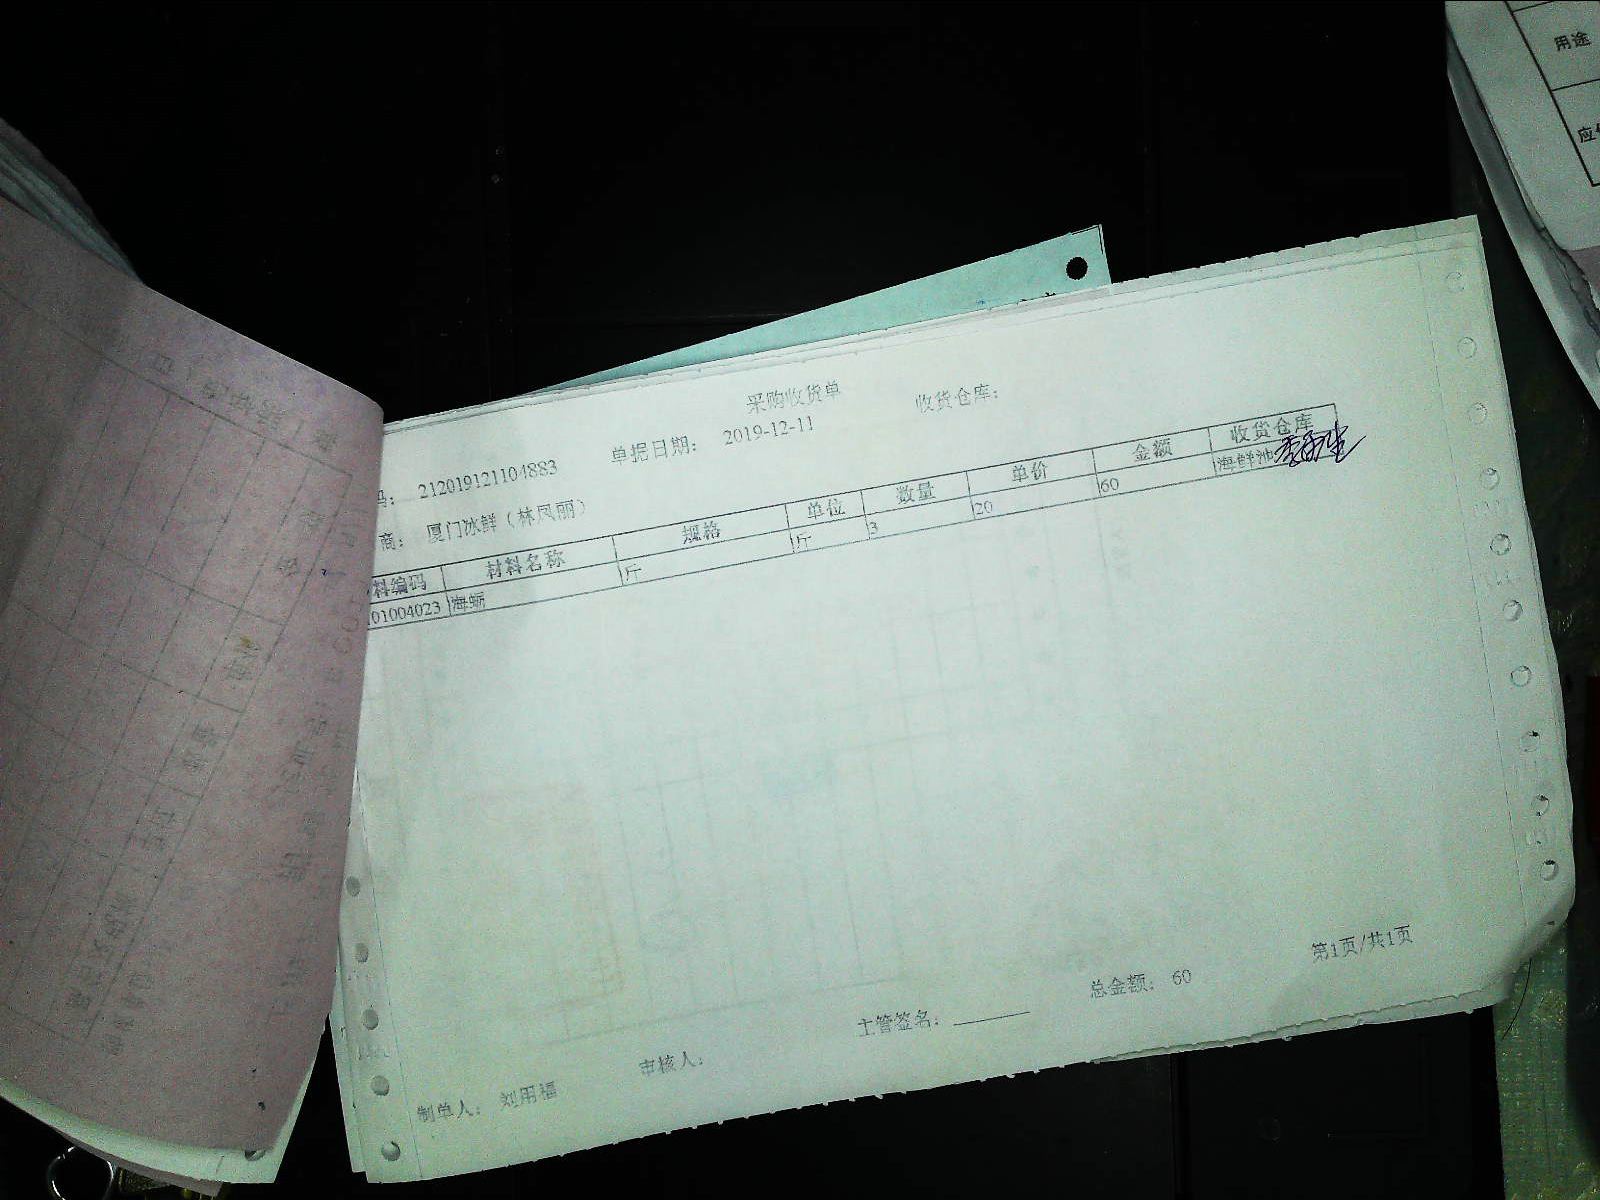 采购收货单
收货仓库：
码： 212019121104883
单据日期： 2019-12-11
商： 厦门冰鲜（林凤丽）
料编码 材料名称 规格 单位 数量 单价 金额 收货仓库
01004023 海蛎 斤 斤 3 20 60 海鲜池
制单人： 刘用福
审核人：
主管签名：
总金额： 60
第1页/共1页
用途
应